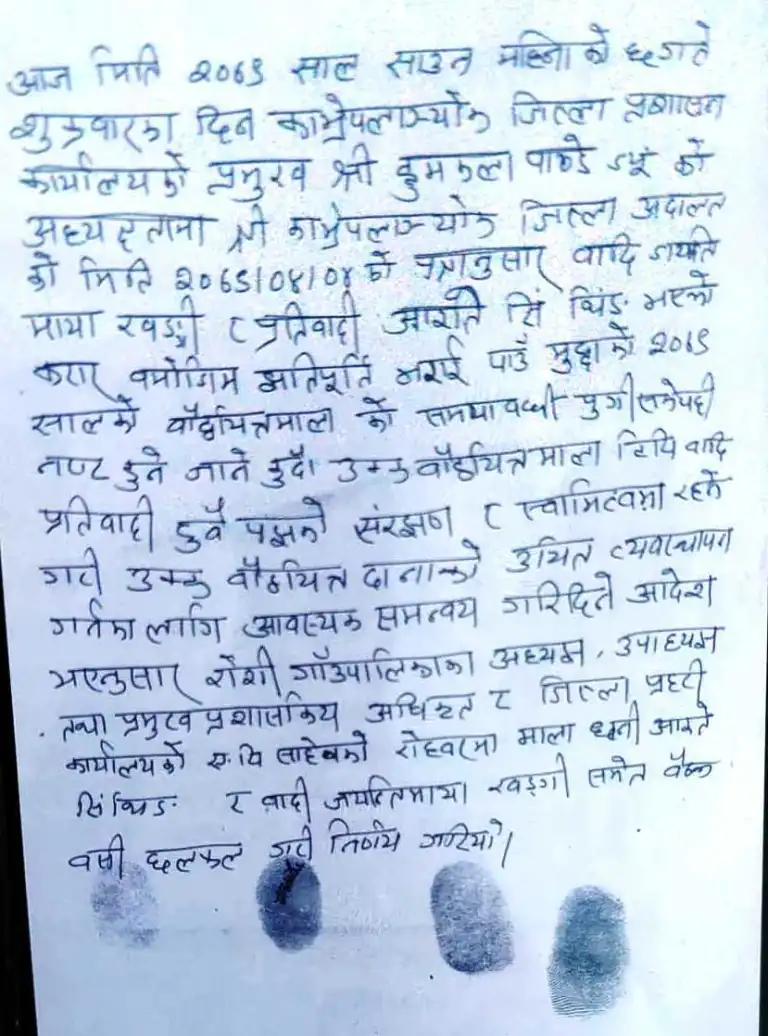 आज मिति २०७९ साल साउन महिना को ६ गते
शुक्रवारका दिन काभ्रेपलाञ्चोक जिल्ला प्रशासन
कार्यालयको प्रमुख श्री द्रुमकला पाण्डे ज्यू को
अध्यक्षतामा श्री काभ्रेपलाञ्चोक जिल्ला अदालत
को मिति को पत्रानुसार वादि जयन्ति
माया खड्गी र प्रतिवादी आइते सिं थिङ भएको
करार बमोजिम क्षतिपूर्ति भराई पाउँ मुद्दाको
सालको यार्चागुम्बा को समयावधी पुगी सकेपछी
नष्ट हुने जाने हुदाँ उक्त टिपि वादि
प्रतिवादी दुवै पक्षको संरक्षण र स्वामित्वमा रहने
गरी उक्त दानाको उचित व्यवस्थापन
गर्नका लागि आवश्यक समन्वय गरिदिने आदेश
भएनुसार रोशी गाँउपालिकाका अध्यक्ष, उपाध्यक्ष
तथा प्रमुख प्रशासकिय अधिकृत र जिल्ला प्रहरी
कार्यालयको साहेबको रोहवरमा माला धनी आइते
सिं थिङ र वादी जयन्तिमाया खड्गी समेत बैठक
बसी छलफल गरी निर्णय गरियो।